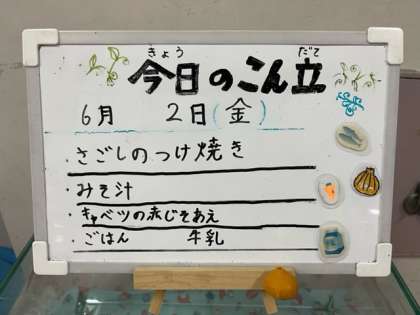 きょう だて
今日のこん立
6月 2日(金)
・さごしのつけ焼き
・みそ汁
・キャベツの赤じそあえ
・ごはん 牛乳